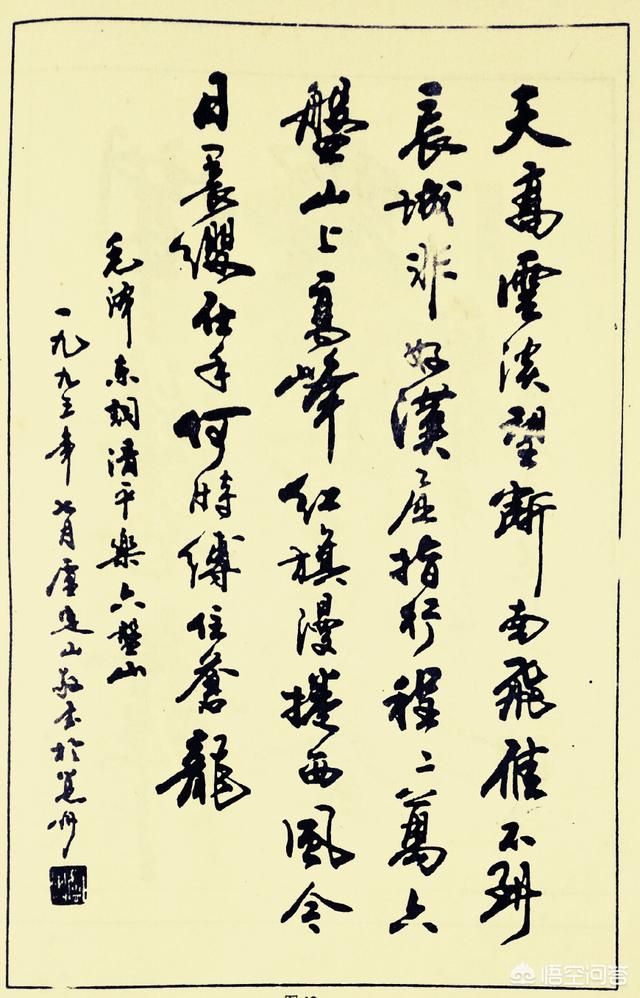 天高雲淡望斷南飛雁不到
長城非好漢屈指行程二萬六
盤山上高峯紅旗漫捲西風今
日長纓在手何時縛住蒼龍
毛澤東詞清平樂六盤山
一九九三年七月盧山敬書於州
悟空问答